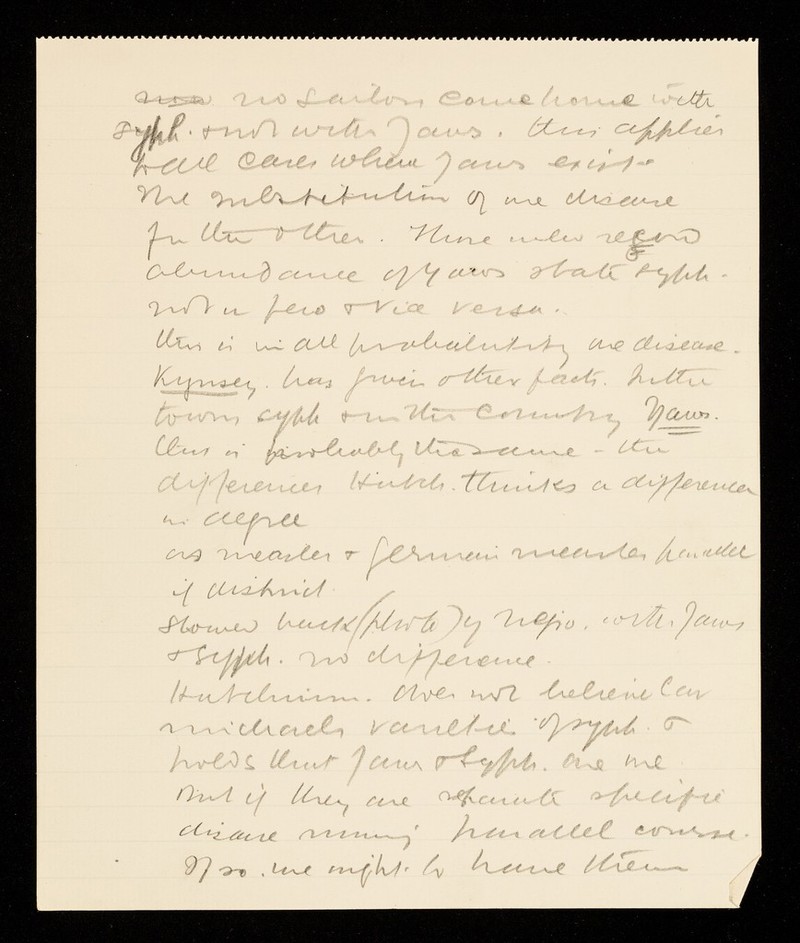 no sailors come home with
syph. & not with Yaws. this applies
to all cases where Yaws exist
The substitution of one disease
for the other. Those who record
abundance of Yaws state syph.
not u few & vice versa.
this is in all probability one disease.
Kynsey. has given other facts. In the
towns syph & in the country Yaws.
this is probably the same - the
differences Hutch. thinks a difference
in degree
as measles & German measles parallel
if district
showed back (photo) of negro. with Yaws
& Syph. no difference.
Hutchinson. does not believe
michaels varieties of syph. &
holds that Yaws & Syph. are one
But if they are separate specific
disease running parallel course.
If so. we ought to have them